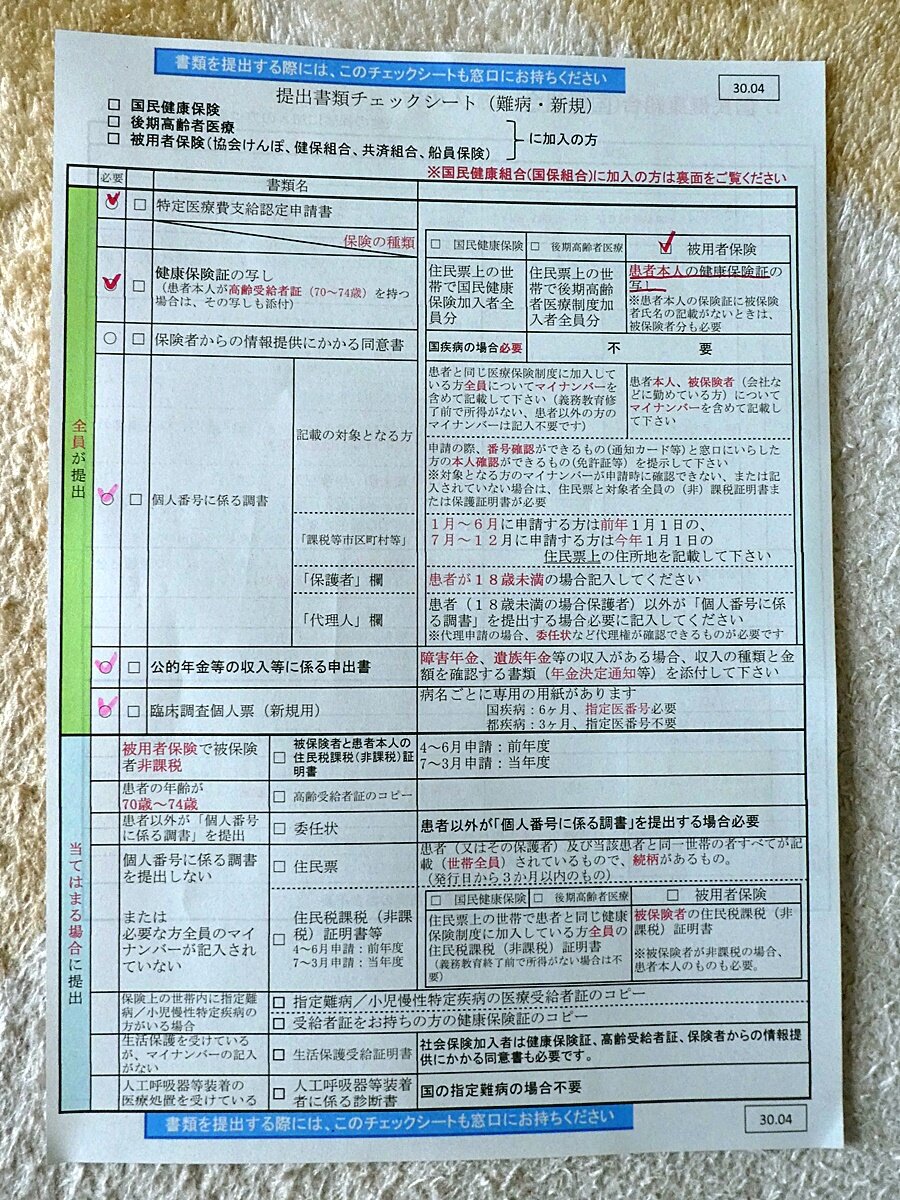 書類を提出する際には、このチェックシートも窓口にお持ちください
30.04
提出書類チェックシート（難病・新規）
□ 国民健康保険
□ 後期高齢者医療
□ 被用者保険(協会けんぽ、健保組合、共済組合、船員保険)
に加入の方
※国民健康組合(国保組合)に加入の方は裏面をご覧ください
必要
書類名
全員が提出
○ □ 特定医療費支給認定申請書
保険の種類
□ 国民健康保険
□ 後期高齢者医療
□ 被用者保険
○ □ 健康保険証の写し
（患者本人が高齢受給者証（70～74歳）を持つ
場合は、その写しも添付）
住民票上の世
帯で国民健康
保険加入者全
員分
住民票上の世
帯で後期高齢
者医療制度加
入者全員分
患者本人の健康保険証の
写し
※患者本人の保険証に被保険
者氏名の記載がないときは、
被保険者分も必要
○ □ 保険者からの情報提供にかかる同意書
国疾病の場合必要
不 要
○ □ 個人番号に係る調書
記載の対象となる方
患者と同じ医療保険制度に加入して
いる方全員についてマイナンバーを
含めて記載して下さい（義務教育修
了前で所得がない、患者以外の方の
マイナンバーは記入不要です）
患者本人、被保険者（会社な
どに勤めている方）について
マイナンバーを含めて記載し
て下さい
申請の際、番号確認ができるもの(通知カード等)と窓口にいらした
方の本人確認ができるもの(免許証等)を提示して下さい
※対象となる方のマイナンバーが申請時に確認できない、または記
入されていない場合は、住民票と対象者全員の（非）課税証明書ま
たは保護証明書が必要
「課税等市区町村等」
１月～６月に申請する方は前年１月１日の、
７月～１２月に申請する方は今年１月１日の
住民票上の住所地を記載して下さい
「保護者」欄
患者が１８歳未満の場合記入してください
「代理人」欄
患者（１８歳未満の場合保護者）以外が「個人番号に係
る調書」を提出する場合必要に記入してください
※代理申請の場合、委任状など代理権が確認できるものが必要です
○ □ 公的年金等の収入等に係る申出書
障害年金、遺族年金等の収入がある場合、収入の種類と金
額を確認する書類（年金決定通知等）を添付して下さい
○ □ 臨床調査個人票（新規用）
病名ごとに専用の用紙があります
国疾病：6ヶ月、指定医番号必要
都疾病：3ヶ月、指定医番号不要
当てはまる場合に提出
被用者保険で被保険
者非課税
□ 被保険者と患者本人の
住民税課税(非課税)証
明書
4～6月申請：前年度
7～3月申請：当年度
患者の年齢が
70歳～74歳
□ 高齢受給者証のコピー
患者以外が「個人番号
に係る調書」を提出
□ 委任状
患者以外が「個人番号に係る調書」を提出する場合必要
個人番号に係る調書
を提出しない
または
必要な方全員のマイ
ナンバーが記入され
ていない
□ 住民票
患者（又はその保護者）及び当該患者と同一世帯の者すべてが記
載（世帯全員）されているもので、続柄があるもの。
（発行日から３か月以内のもの）
□ 住民税課税（非課
税）証明書等
4～6月申請：前年度
7～3月申請：当年度
□ 国民健康保険
□ 後期高齢者医療
□ 被用者保険
住民票上の世帯で患者と同じ健康
保険制度に加入している方全員の
住民税課税（非課税）証明書
（義務教育終了前で所得がない場合は不
要）
被保険者の住民税課税（非
課税）証明書
※被保険者が非課税の場合、
患者本人のものも必要。
保険上の世帯内に指定難
病／小児慢性特定疾病の
方がいる場合
□ 指定難病／小児慢性特定疾病の医療受給者証のコピー
□ 受給者証をお持ちの方の健康保険証のコピー
生活保護を受けている
が、マイナンバーの記入
がない
□ 生活保護受給証明書
社会保険加入者は健康保険証、高齢受給者証、保険者からの情報提
供にかかる同意書も必要です。
人工呼吸器等装着の
医療処置を受けている
□ 人工呼吸器等装着
者に係る診断書
国の指定難病の場合不要
書類を提出する際には、このチェックシートも窓口にお持ちください
30.04